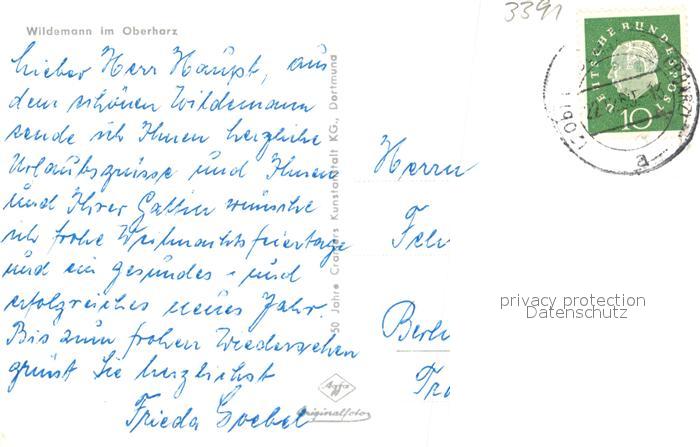 3391
Wildemann im Oberharz
Lieber Herr Haupt, aus
dem schönen Wildemann
sende ich Ihnen herzliche
Urlaubsgrüsse und Ihnen
und Ihrer Gattin wünsche
ich frohe Weihnachtsfeiertage
und ein gesundes - und
erfolgreiches neues Jahr.
Bis zum frohen Wiedersehen
grüsst Sie herzlichst
Frieda Goebel
50 Jahre Crämers Kunstanstalt KG., Dortmund
Agfa
Originalfoto
Herrn
Berl
DEUTSCHE BUNDESPOST
10
privacy protection
Datenschutz